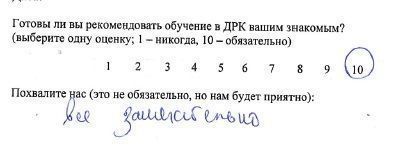 Готовы ли вы рекомендовать обучение в ДРК вашим знакомым?
(выберите одну оценку; 1 – никогда, 10 – обязательно)
1 2 3 4 5 6 7 8 9 10
Похвалите нас (это не обязательно, но нам будет приятно):
все замечательно